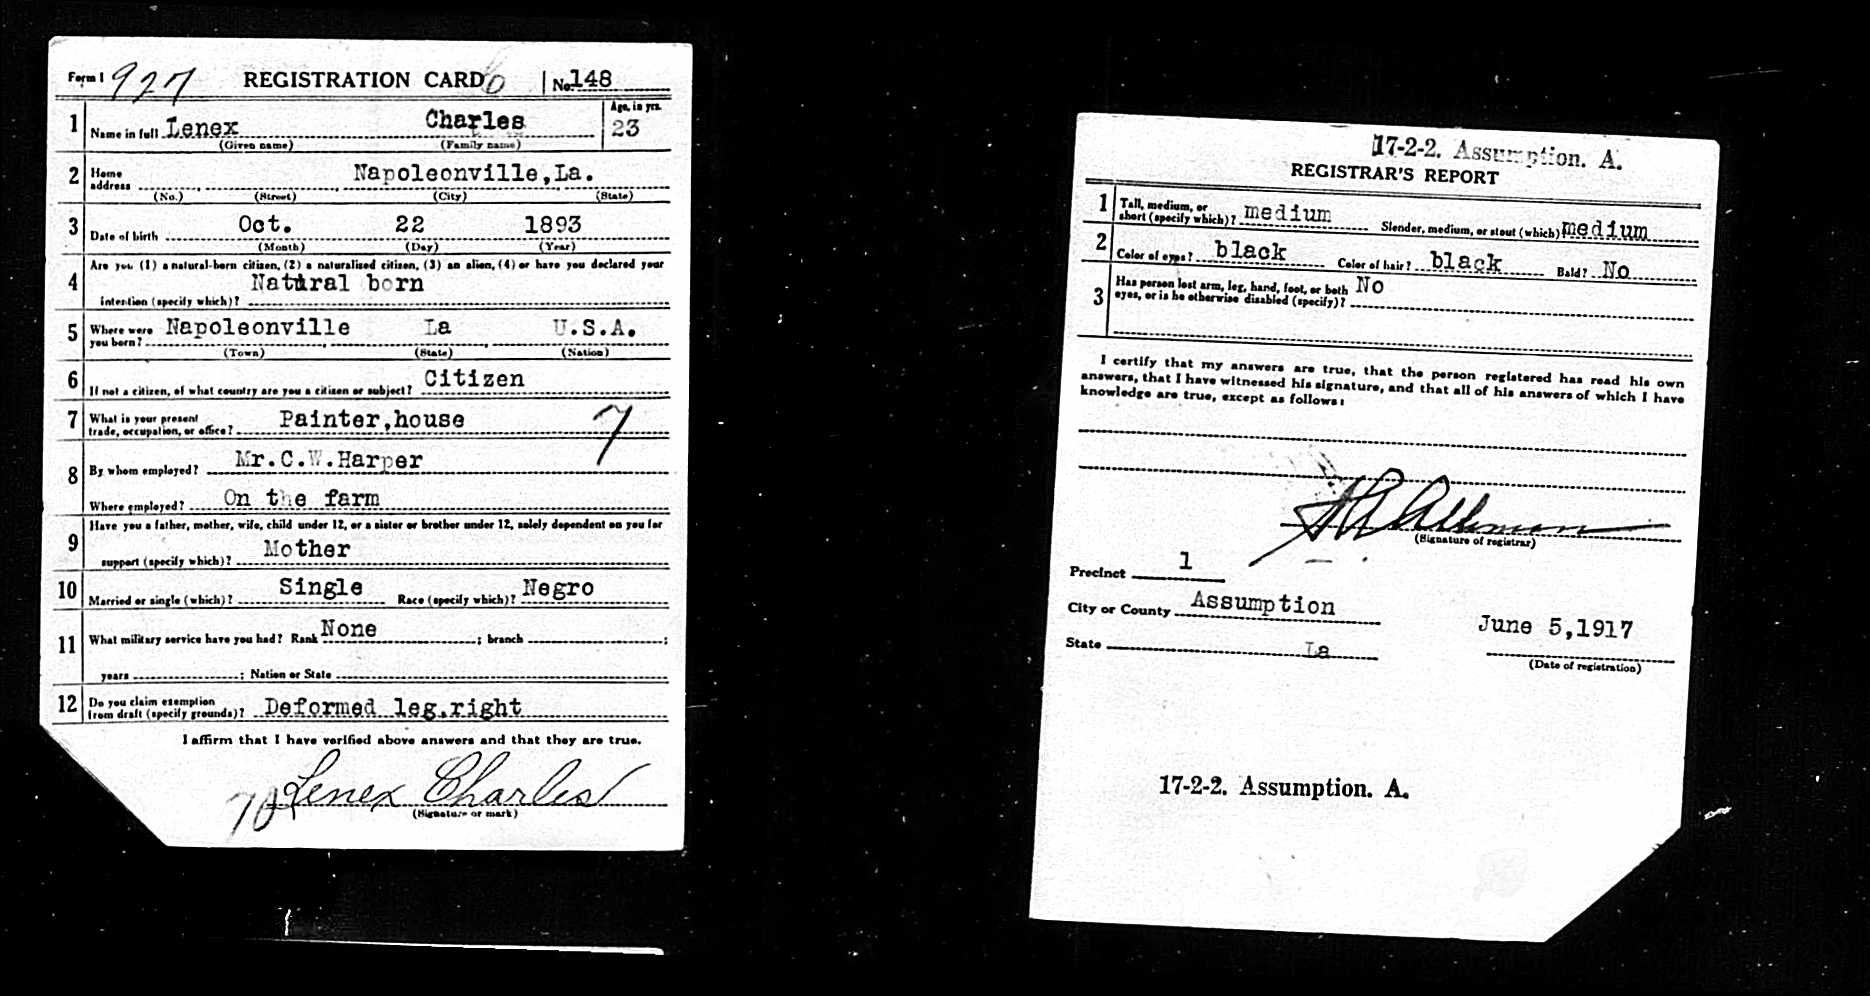 Form 1 927 REGISTRATION CARD No. 148
1 Name in full Lenex Charles Age, in yrs. 23
(Given name) (Family name)
2 Home address Napoleonville, La.
(No.) (Street) (City) (State)
3 Date of birth Oct. 22 1893
(Month) (Day) (Year)
4 Are you (1) a natural-born citizen, (2) a naturalized citizen, (3) an alien, (4) or have you declared your
intention (specify which)? Natural born
5 Where were you born? Napoleonville La U.S.A.
(Town) (State) (Nation)
6 If not a citizen, of what country are you a citizen or subject? Citizen
7 What is your present trade, occupation, or office? Painter,house 7
8 By whom employed? Mr.C.W.Harper
Where employed? On the farm
9 Have you a father, mother, wife, child under 12, or a sister or brother under 12, solely dependent on you for
support (specify which)? Mother
10 Married or single (which)? Single Race (specify which)? Negro
11 What military service have you had? Rank None ; branch ;
years ; Nation or State
12 Do you claim exemption from draft (specify grounds)? Deformed leg.right
I affirm that I have verified above answers and that they are true.
Lenex Charles
(Signature or mark)
17-2-2. Assumption. A.
REGISTRAR'S REPORT
1 Tall, medium, or short (specify which)? medium Slender, medium, or stout (which)? medium
2 Color of eyes? black Color of hair? black Bald? No
3 Has person lost arm, leg, hand, foot, or both eyes, or is he otherwise disabled (specify)? No
I certify that my answers are true, that the person registered has read his own
answers, that I have witnessed his signature, and that all of his answers of which I have
knowledge are true, except as follows:
(Signature of registrar)
Precinct 1
City or County Assumption
State La
June 5,1917
(Date of registration)
17-2-2. Assumption. A.